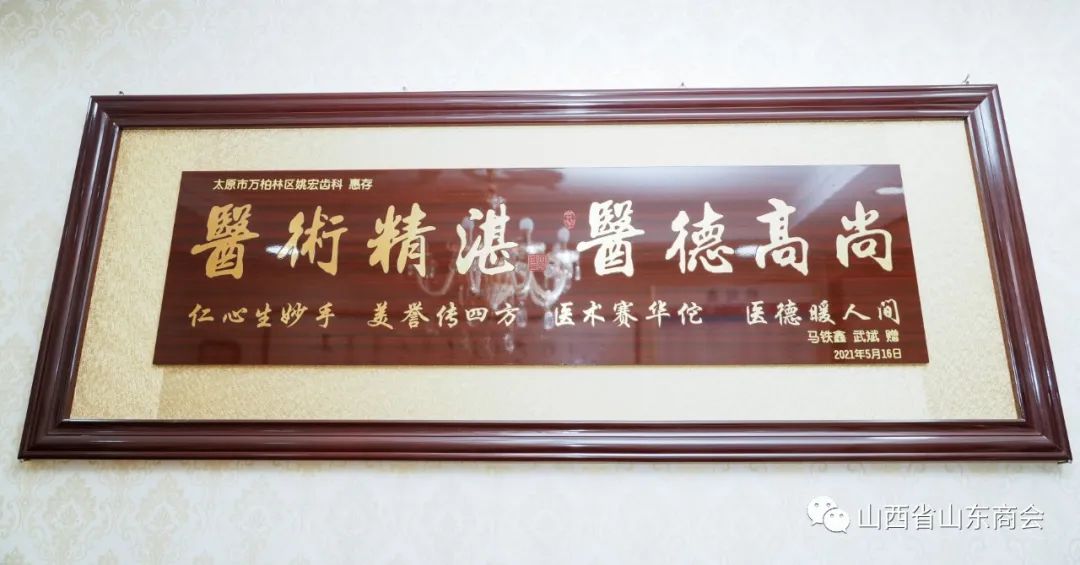 太原市万柏林区姚宏齿科 惠存
醫術精湛 醫德高尚
仁心生妙手 美誉传四方 医术赛华佗 医德暖人间
马铁鑫 武斌 赠
2021年5月16日
山西省山东商会